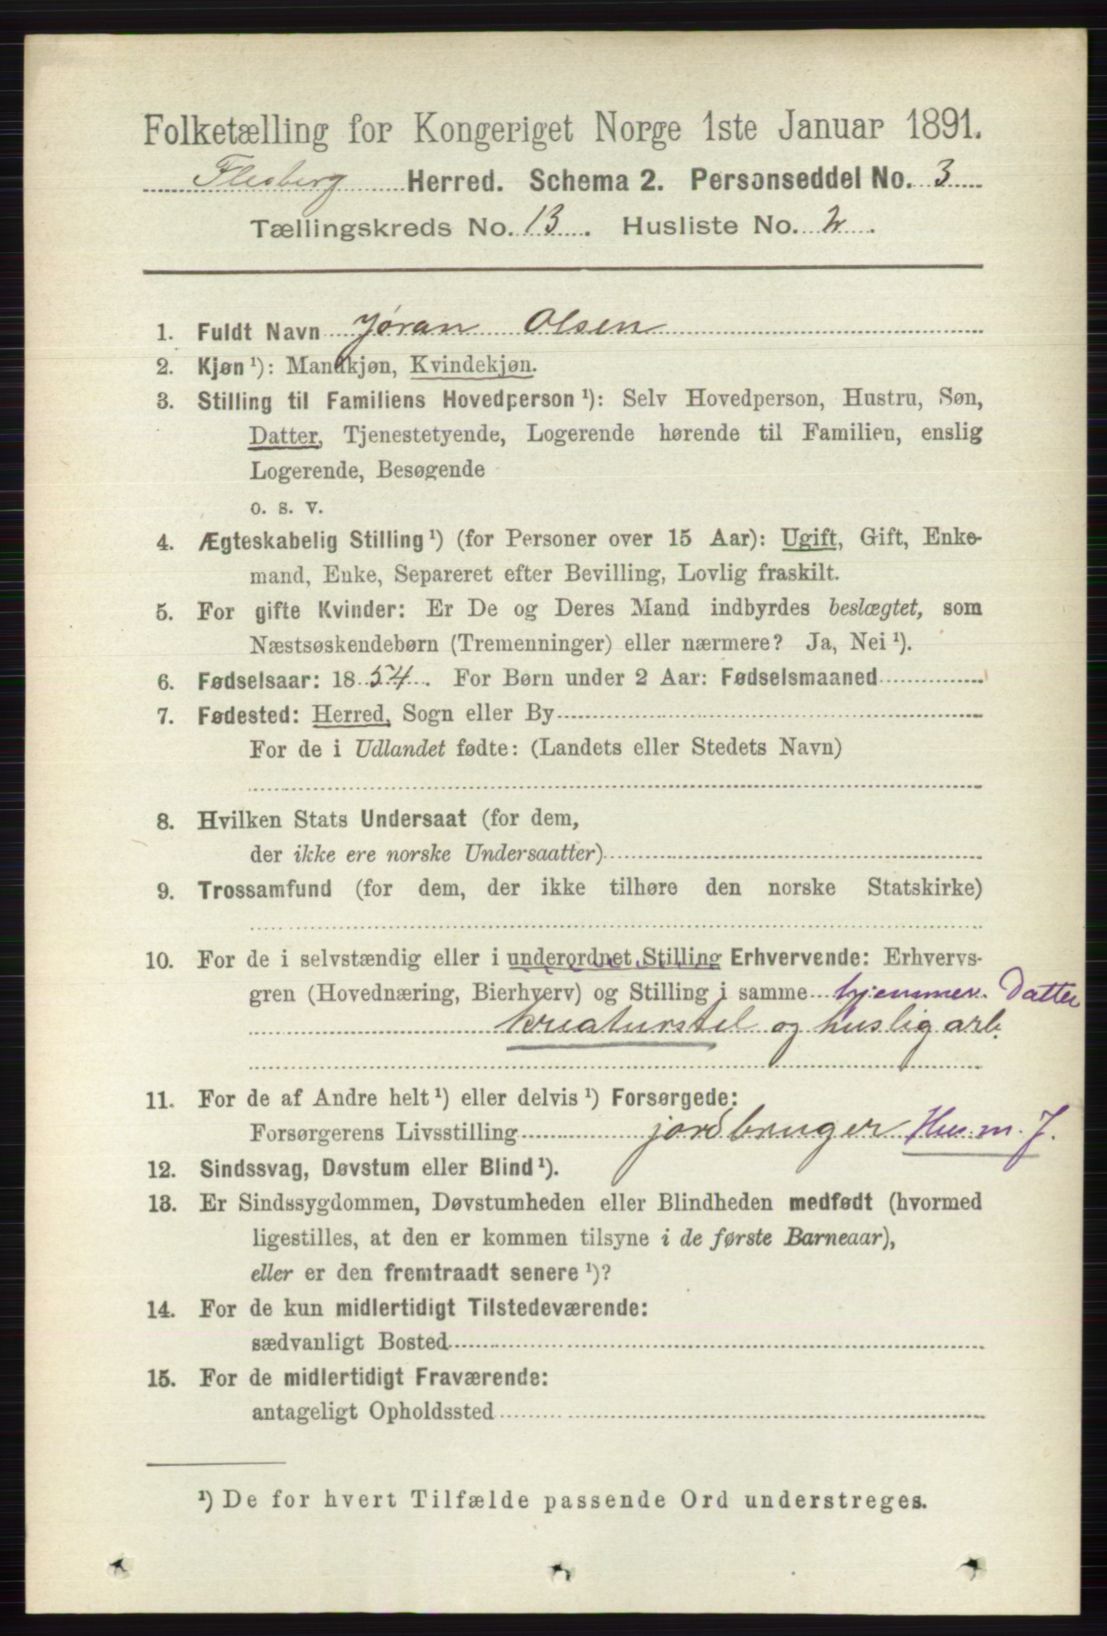 Folketælling for Kongeriget Norge 1ste Januar 1891.
Flesberg Herred. Schema 2. Personseddel No. 3
Tællingskreds No. 13. Husliste No. 2.
1. Fuldt Navn Jøran Olsen
2. Kjøn ¹): Mandkjøn, Kvindekjøn.
3. Stilling til Familiens Hovedperson ¹): Selv Hovedperson, Hustru, Søn,
Datter, Tjenestetyende, Logerende hørende til Familien, enslig
Logerende, Besøgende
o. s. v.
4. Ægteskabelig Stilling ¹) (for Personer over 15 Aar): Ugift, Gift, Enke-
mand, Enke, Separeret efter Bevilling, Lovlig fraskilt.
5. For gifte Kvinder: Er De og Deres Mand indbyrdes beslægtet, som
Næstsøskendebørn (Tremenninger) eller nærmere? Ja, Nei ¹).
6. Fødselsaar: 1854. For Børn under 2 Aar: Fødselsmaaned
7. Fødested: Herred, Sogn eller By
For de i Udlandet fødte: (Landets eller Stedets Navn)
8. Hvilken Stats Undersaat (for dem,
der ikke ere norske Undersaatter)
9. Trossamfund (for dem, der ikke tilhøre den norske Statskirke)
10. For de i selvstændig eller i underordnet Stilling Erhvervende: Erhvervs-
gren (Hovednæring, Bierhverv) og Stilling i samme hjemmev. Datter
kreaturstel og huslig arb.
11. For de af Andre helt ¹) eller delvis ¹) Forsørgede:
Forsørgerens Livsstilling jordbruger Husm. J.
12. Sindssvag, Døvstum eller Blind ¹).
13. Er Sindssygdommen, Døvstumheden eller Blindheden medfødt (hvormed
ligestilles, at den er kommen tilsyne i de første Barneaar),
eller er den fremtraadt senere ¹)?
14. For de kun midlertidigt Tilstedeværende:
sædvanligt Bosted
15. For de midlertidigt Fraværende:
antageligt Opholdssted
¹) De for hvert Tilfælde passende Ord understreges.